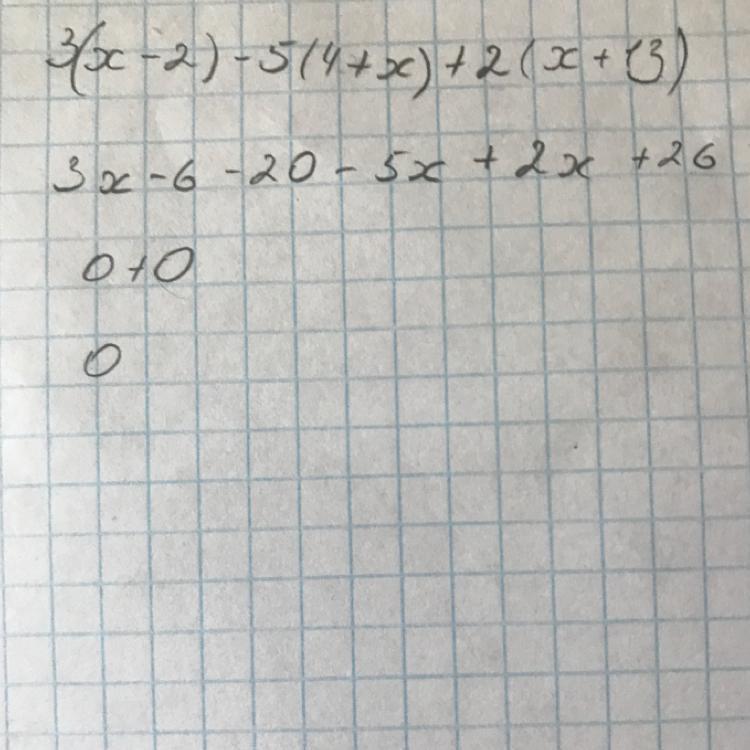 3(x-2)-5(4+x)+2(x+13)
3x-6-20-5x+2x+26
0+0
0